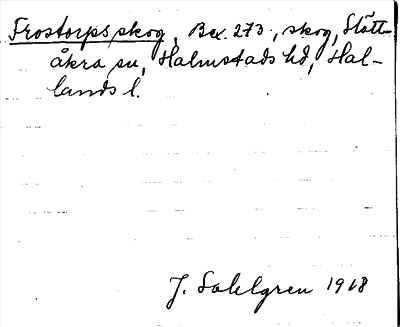 Frostorpsskog, Bex. 273, skog, Slätt-
åkra sn, Halmstads hd, Hal-
lands l.
J. Sahlgren 1918